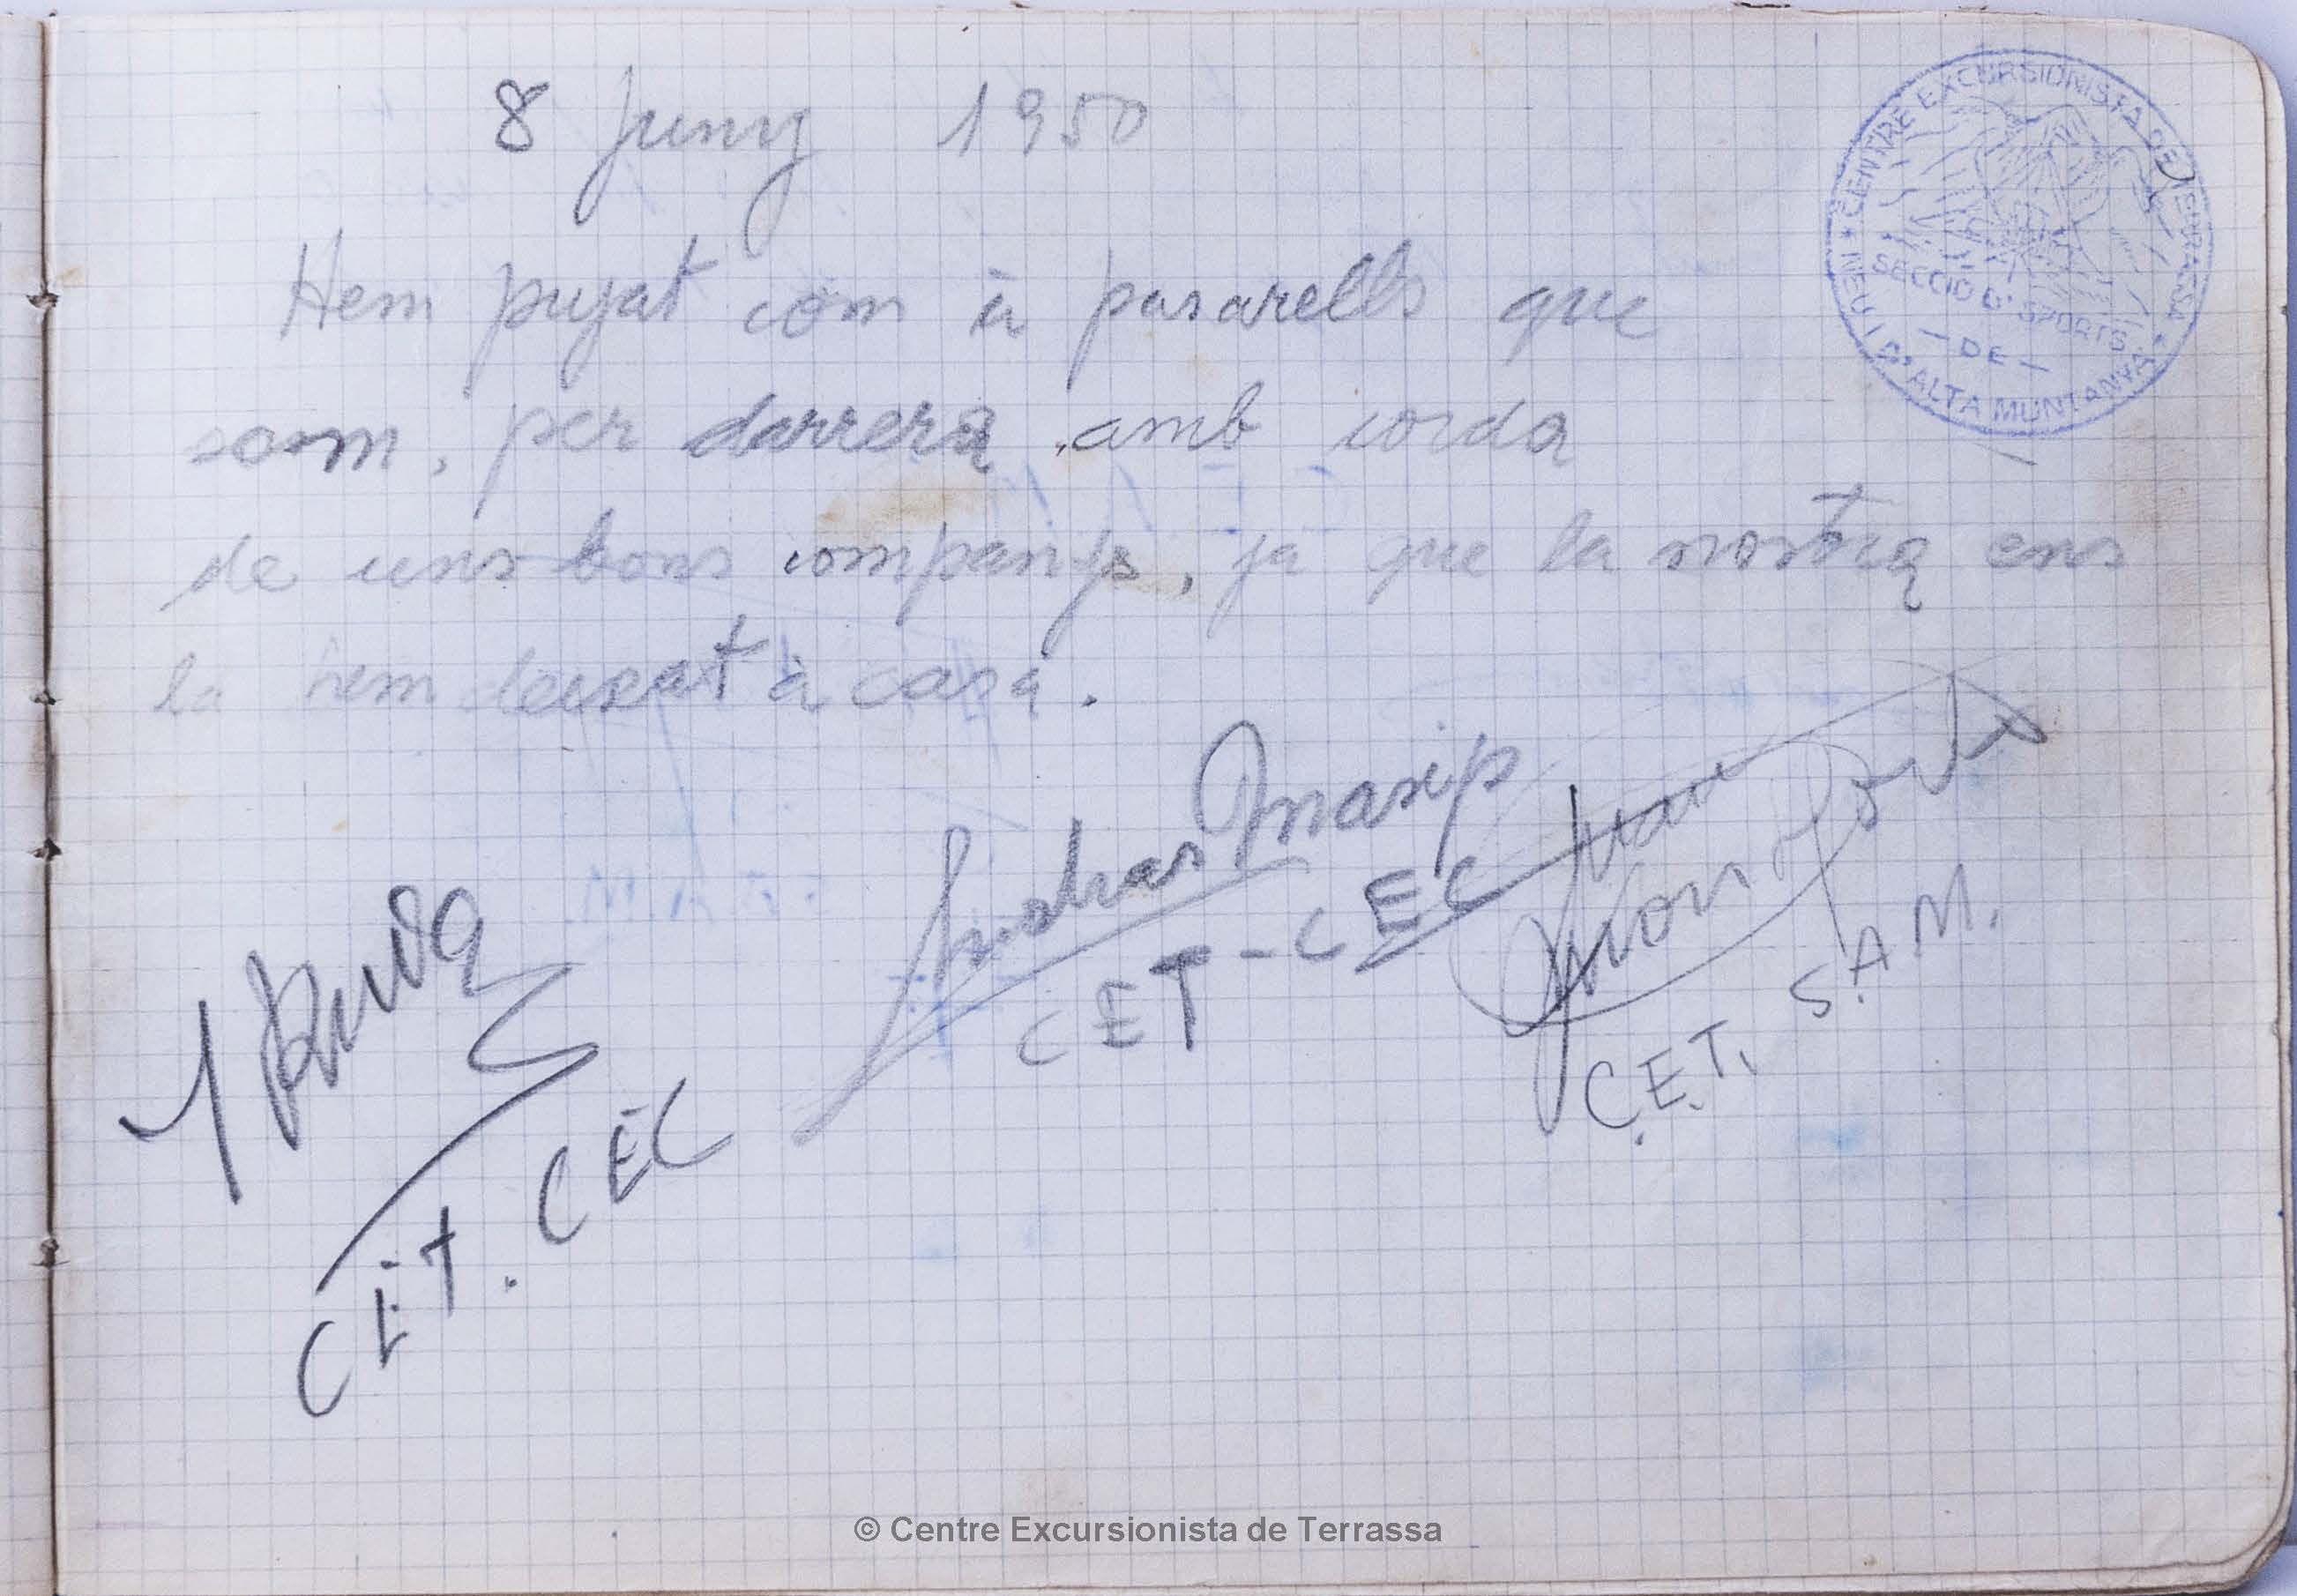 8 Juny 1950
CENTRE EXCURSIONISTA DE TERRASSA
SECCIÓ D'SPORTS
— DE —
NEU I D'ALTA MUNTANYA
Hem pujat com à pasarells que
som, per darrera amb corda
de uns bons companys, ja que la nostra ens
la hem deixat à casa.
Masip
CET-CEC
C.E.T. S.A.M.
CET. CEC
© Centre Excursionista de Terrassa